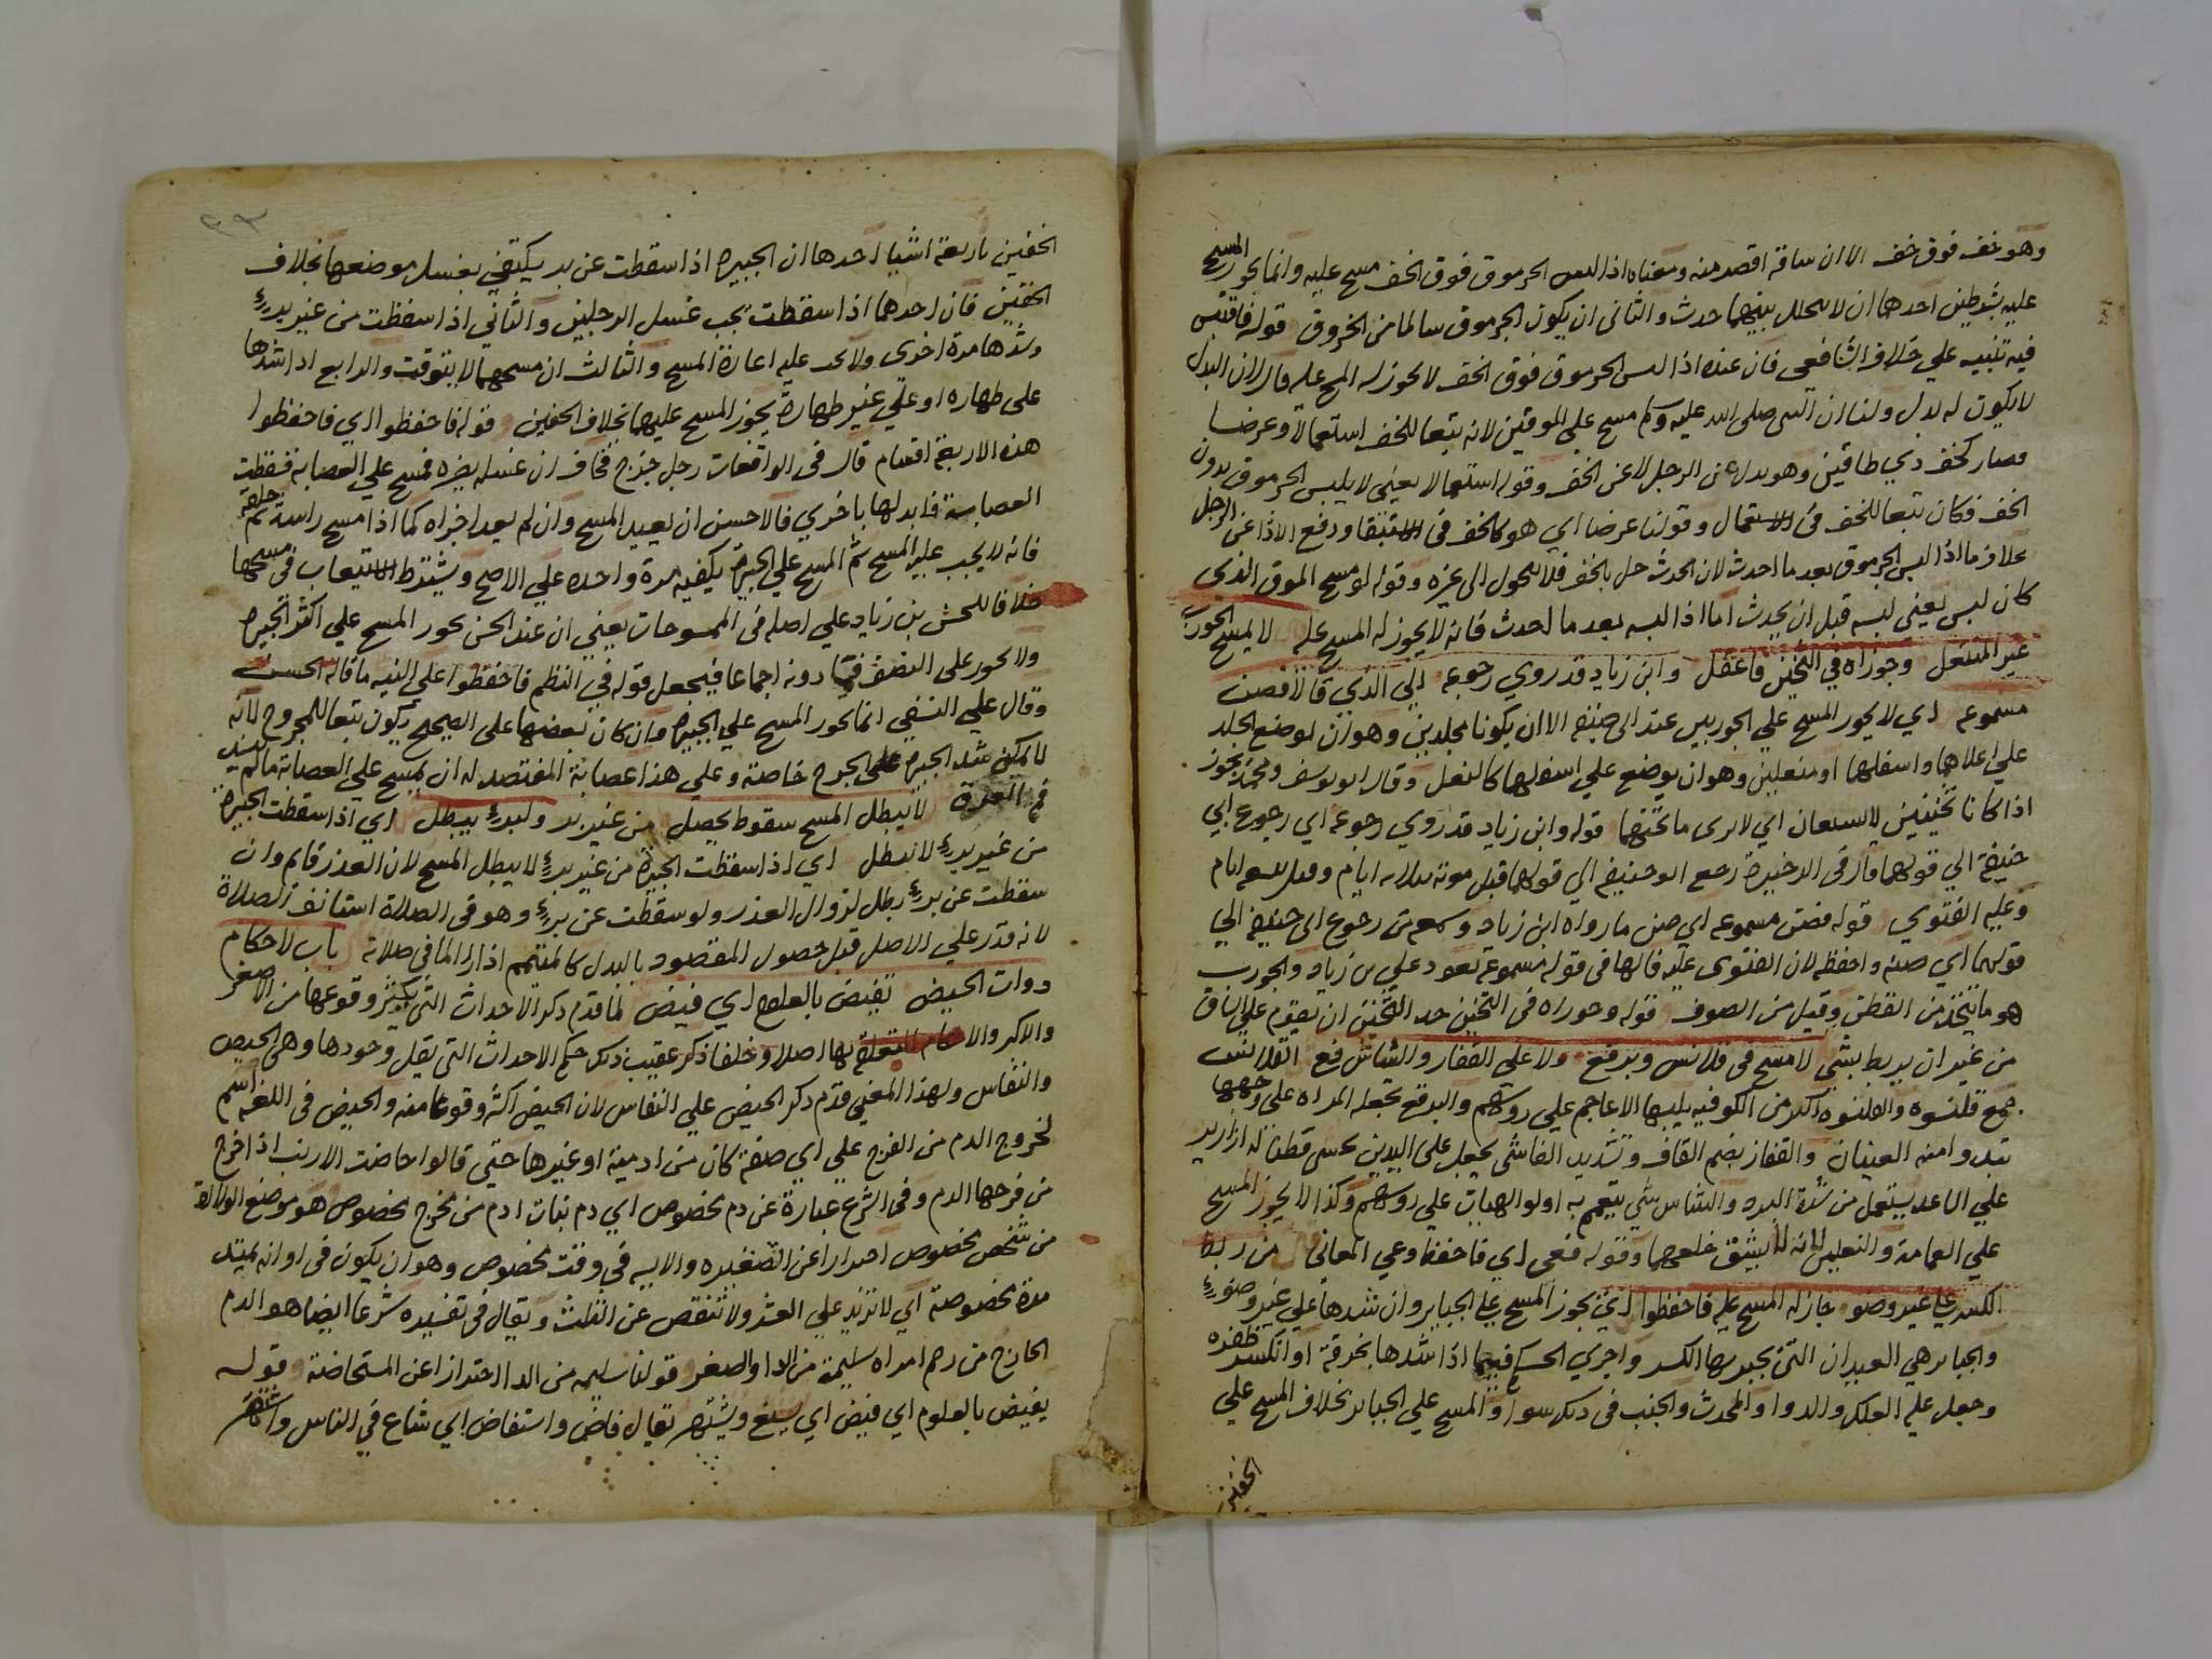 وهو خف فوق خف الا ان ساقه اقصر منه ومعناه اذا لبس الجرموق فوق الخف مسح عليه وانما يجوز المسح
عليه بشرطين احدهما ان لا يتخلل بينهما حدث والثاني ان يكون الجرموق سالما من الخروق قوله فاقتبس
فيه تنبيه علي خلاف الشافعي فان عنده اذا لبس الجرموق فوق الخف لا يجوز له المسح عليه قال لان البدل
لا يكون له بدل ولنا ان النبي صلى الله عليه وسلم مسح علي الموقين لانه يتبعا للخف استعمالا وغرضا
فصار كخف ذي طاقين وهو بدل عن الرجل لا عن الخف وقوله استعمالا يعني لا يلبس الجرموق بدون
الخف فكان تبعا للخف في الاستعمال وقولنا غرضا اي هو كالخف في الاستبقا ودفع الاذا عن الرجل
بخلاف ما اذا لبس الجرموق بعد ما احدث لان الحدث حل بالخف فلا يتحول الى غيره وقوله لو مسح الموق الذي
كان لبس يعني لبسه قبل ان يحدث اما اذا لبسه بعد ما احدث فانه لا يجوز له المسح عليه لا يمسح الجورب
غير المنعل وجوزاه في الثخين فاعقل وابن زياد قد روي رجوعه الي الذي قالا فصن
مسموعه اي لا يجوز المسح علي الجوربين عند ابي حنيفه الا ان يكونا مجلدين وهو ان يوضع الجلد
علي اعلاهما واسفلهما او منعلين وهو ان يوضع علي اسفلهما كالنعل وقال ابو يوسف ومحمد يجوز
اذا كانا ثخينين لا يشفان اي لا يرى ما تحتهما قوله وابن زياد قد روي رجوعه اي رجوع ابي
حنيفة الي قولهما قال في الذخيرة رجع ابو حنيفه الي قولهما قبل موته بثلاثه ايام وقيل بسبعه ايام
وعليه الفتوي قوله فصن مسموعه اي صن ما رواه ابن زياد وسمعه من رجوع ابي حنيفه الي
قولهما اي صنه واحفظه لان الفتوى عليه فالها في قوله مسموعه تعود علي بن زياد والجورب
هو ما يتخذ من القطن وقيل من الصوف قوله وجوزاه في الثخين حد الثخين ان يقوم علي الساق
من غير ان يربط بشي لا مسح في قلانس وبرقع ولا علي القفاز والشاش فع القلانس
جمع قلنسوه والقلنسوه اكبر من الكوفيه يلبسها الاعاجم علي روسهم والبرقع تجعله المراه علي وجهها
تبدوا منه العينان والقفاز بضم القاف وتشديد الفا شي يجعل على اليدين يحشى قطنا له ازارير
علي الساعد يستعمل من شدة البرد والشاش شي يتعمم به اولوا الهيات علي روسهم وكذا لا يجوز المسح
علي العمامة والنعلين لانه لا يشق خلعهما وقوله فعى اي فاحفظ وعي المعاني من ربط
الكسر علي غير وضو جاز له المسح عليه فاحفظوا اي يجوز المسح علي الجباير وان شدها علي غير وضوء
والجباير هي العيدان التي يجبر بها الكسر واجري الحكم فيما اذا شدها بخرقة او انكسر ظفره
وجعل عليه العلك والدوا والمحدث والجنب في ذلك سوا والمسح علي الجباير بخلاف المسح علي
الخفين
الخفين باربعة اشيا احدها ان الجبيرة اذا سقطت عن برء يكتفي بغسل موضعها بخلاف
الخفين فان احدهما اذا سقطت يجب غسل الرجلين والثاني اذا سقطت من غير برء
وشدها مرة اخرى ولا يجب عليه اعادة المسح والثالث ان مسحهما لا يتوقت والرابع اذا شدها
على طهاره او علي غير طهارة يجوز المسح عليهما بخلاف الخفين قوله فاحفظوا اي فاحفظوا
هذه الاربعة اقسام قال في الواقعات رجل جرح فخاف ان غسله يضره فمسح علي العصابه فسقطت
العصابة فابدلها باخري فالاحسن ان يعيد المسح وان لم يعد اجزاه كما اذا مسح راسه ثم حلقه
فانه لا يجب عليه المسح ثم المسح علي الجبيرة يكفيه مرة واحده علي الاصح ويشترط الاستيعاب في مسحها
خلافا للحسن بن زياد علي اصله في الممسوحات يعني ان عند الحسن يجوز المسح علي اكثر الجبيرة
ولا يجوز على النصف فما دونه اجماعا فيجعل قوله في النظم فاحفظوا علي التنبيه ما قاله الحسن
وقال علي النسفي انما يجوز المسح علي الجبيرة وان كان بعضها على الصحيح يكون تبعا للمجروح لانه
لا يمكن شد الجبيرة علي الجرح خاصة وعلي هذا عصابة المفتصد له ان يمسح علي العصابة ما لم
فم العرق لا يبطل المسح سقوط يحصل من غير برء ولبرء يبطل اي اذا سقطت الجبيرة
من غير برء لا يبطل اي اذا سقطت الجبيرة من غير برء لا يبطل المسح لان العذر قايم وان
سقطت عن برء بطل لزوال العذر ولو سقطت عن برء وهو في الصلاة استانف الصلاة
لانه قدر علي الاصل قبل حصول المقصود بالبدل كالمتيمم اذا راي الما في صلاته باب لاحكام
ذوات الحيض تفيض بالعلوم اي فيض لما قدم ذكر الاحداث التي يكثر وقوعها من الاصغر
والاكبر والاحكام المتعلقة بها اصلا وخلفا ذكر عقيب ذلك حكم الاحداث التي يقل وجودها وهي الحيض
والنفاس ولهذا المعني قدم ذكر الحيض علي النفاس لان الحيض اكثر وقوعا منه والحيض في اللغه اسم
لخروج الدم من الفرج علي اي صفة كان من ادمية او غيرها حتي قالوا حاضت الارنب اذا خرج
من فرجها الدم وفي الشرع عبارة عن دم مخصوص اي دم بنات ادم من مخرج مخصوص هو موضع الولادة
من شخص مخصوص احترازا عن الصغيره والايسه في وقت مخصوص وهو ان يكون في اوانه يمتد
مدة مخصوصة اي لا تزيد علي العشر ولا تنقص عن الثلث ويقال في تفسيره شرعا ايضا هو الدم
الخارج من رحم امراه سليمة من الدا والصغر قولنا سليمه من الدا احترازا عن المستحاضة قوله
يفيض بالعلوم اي فيض اي يبلغ ويشتهر يقال فاض واستفاض اي شاع في الناس واشتهر